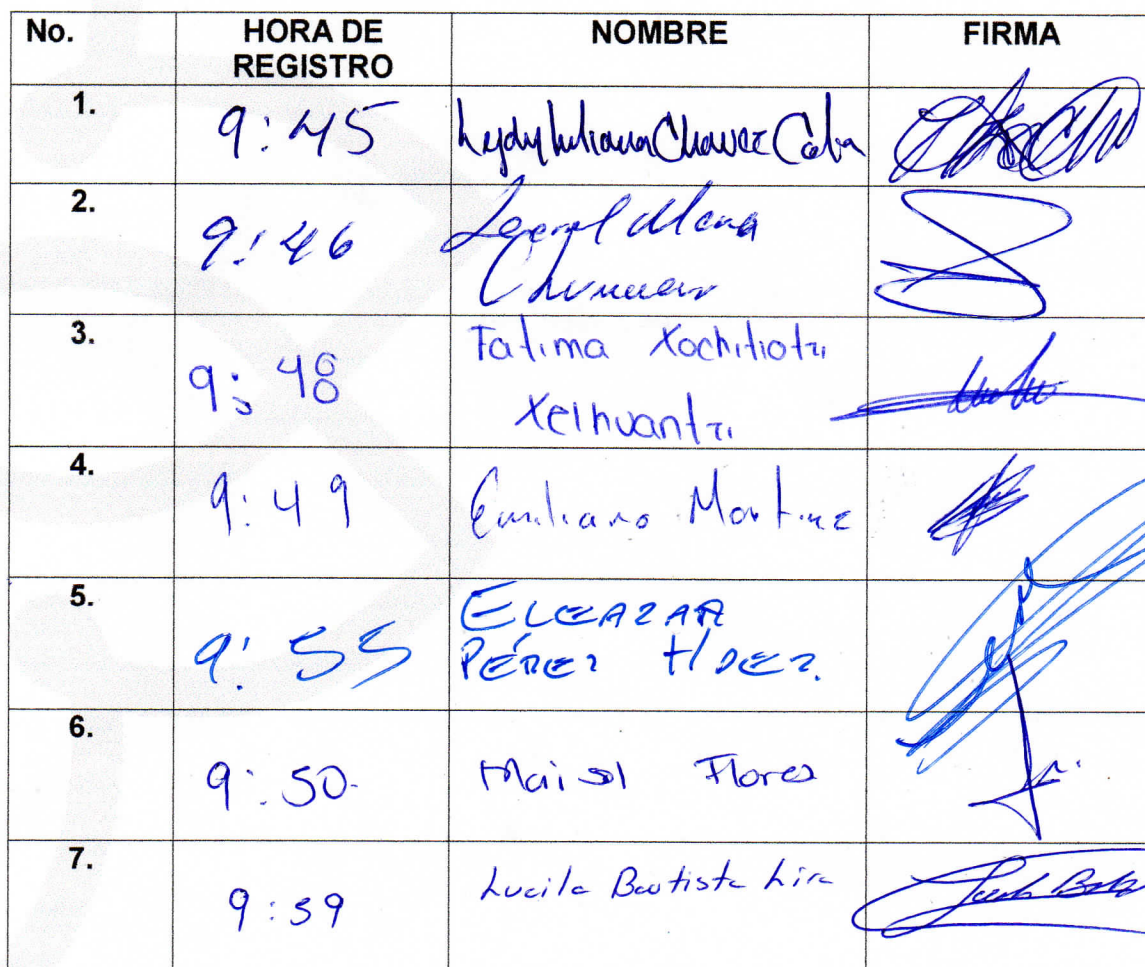 No. HORA DE NOMBRE FIRMA
REGISTRO
1. 9:45 Lydy Iuliana Chavez
2. 9:46 Mena
3. 9:48 Fatima Xochitiotzi
Xelhuantzi
4. 9:49 Emiliano Martinez
5. 9:55 ELEAZAR
PÉREZ H/DEZ.
6. 9:50. Marisol Flores
7. 9:59 Lucila Bautista Lira